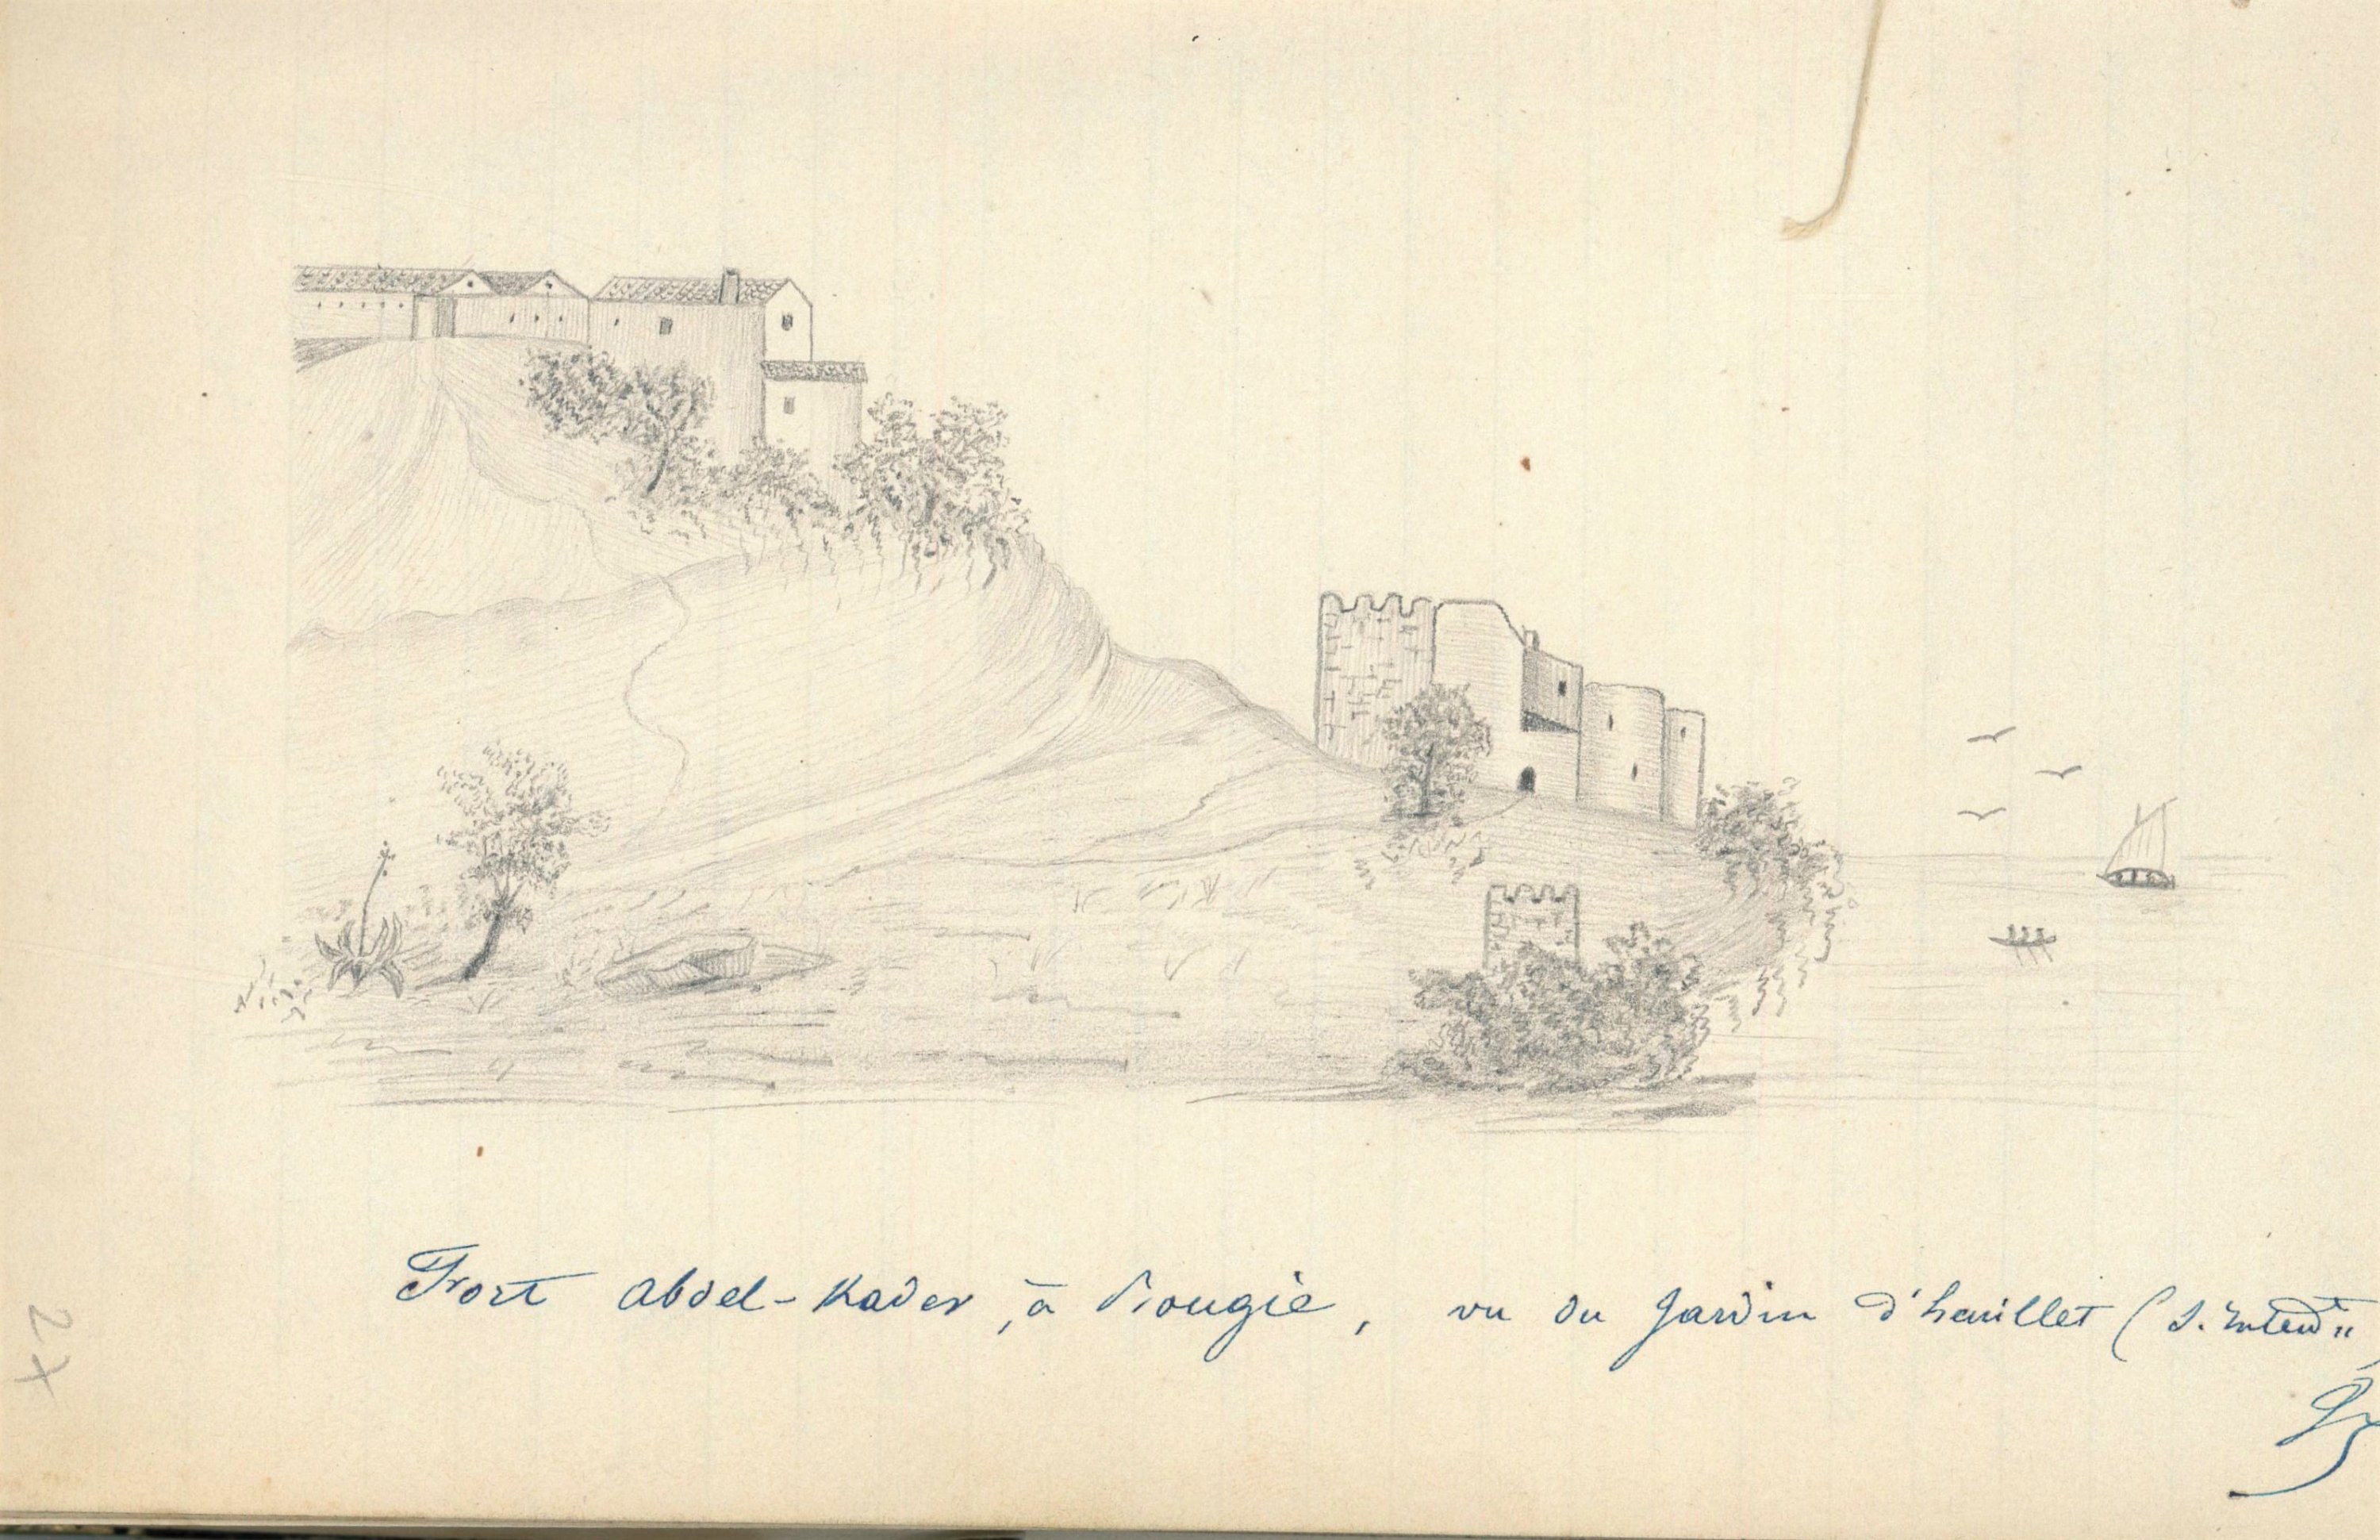 Fort Abdel-Kader, à Bougie, vu du Jardin d'heuillet (S. Intend.t
27